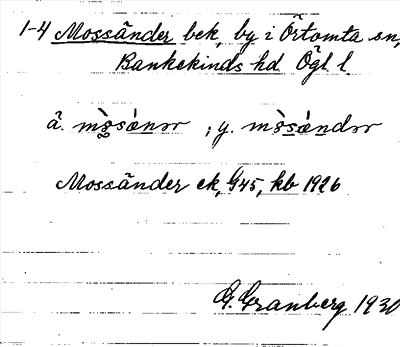 1-4 Mossänder bek, by i Örtomta sn,
Bankekinds hd Ögl l.
ä. mòsánər ; y. mòsándər
Mossänder ek, G45, kb 1926
G. Granberg 1930